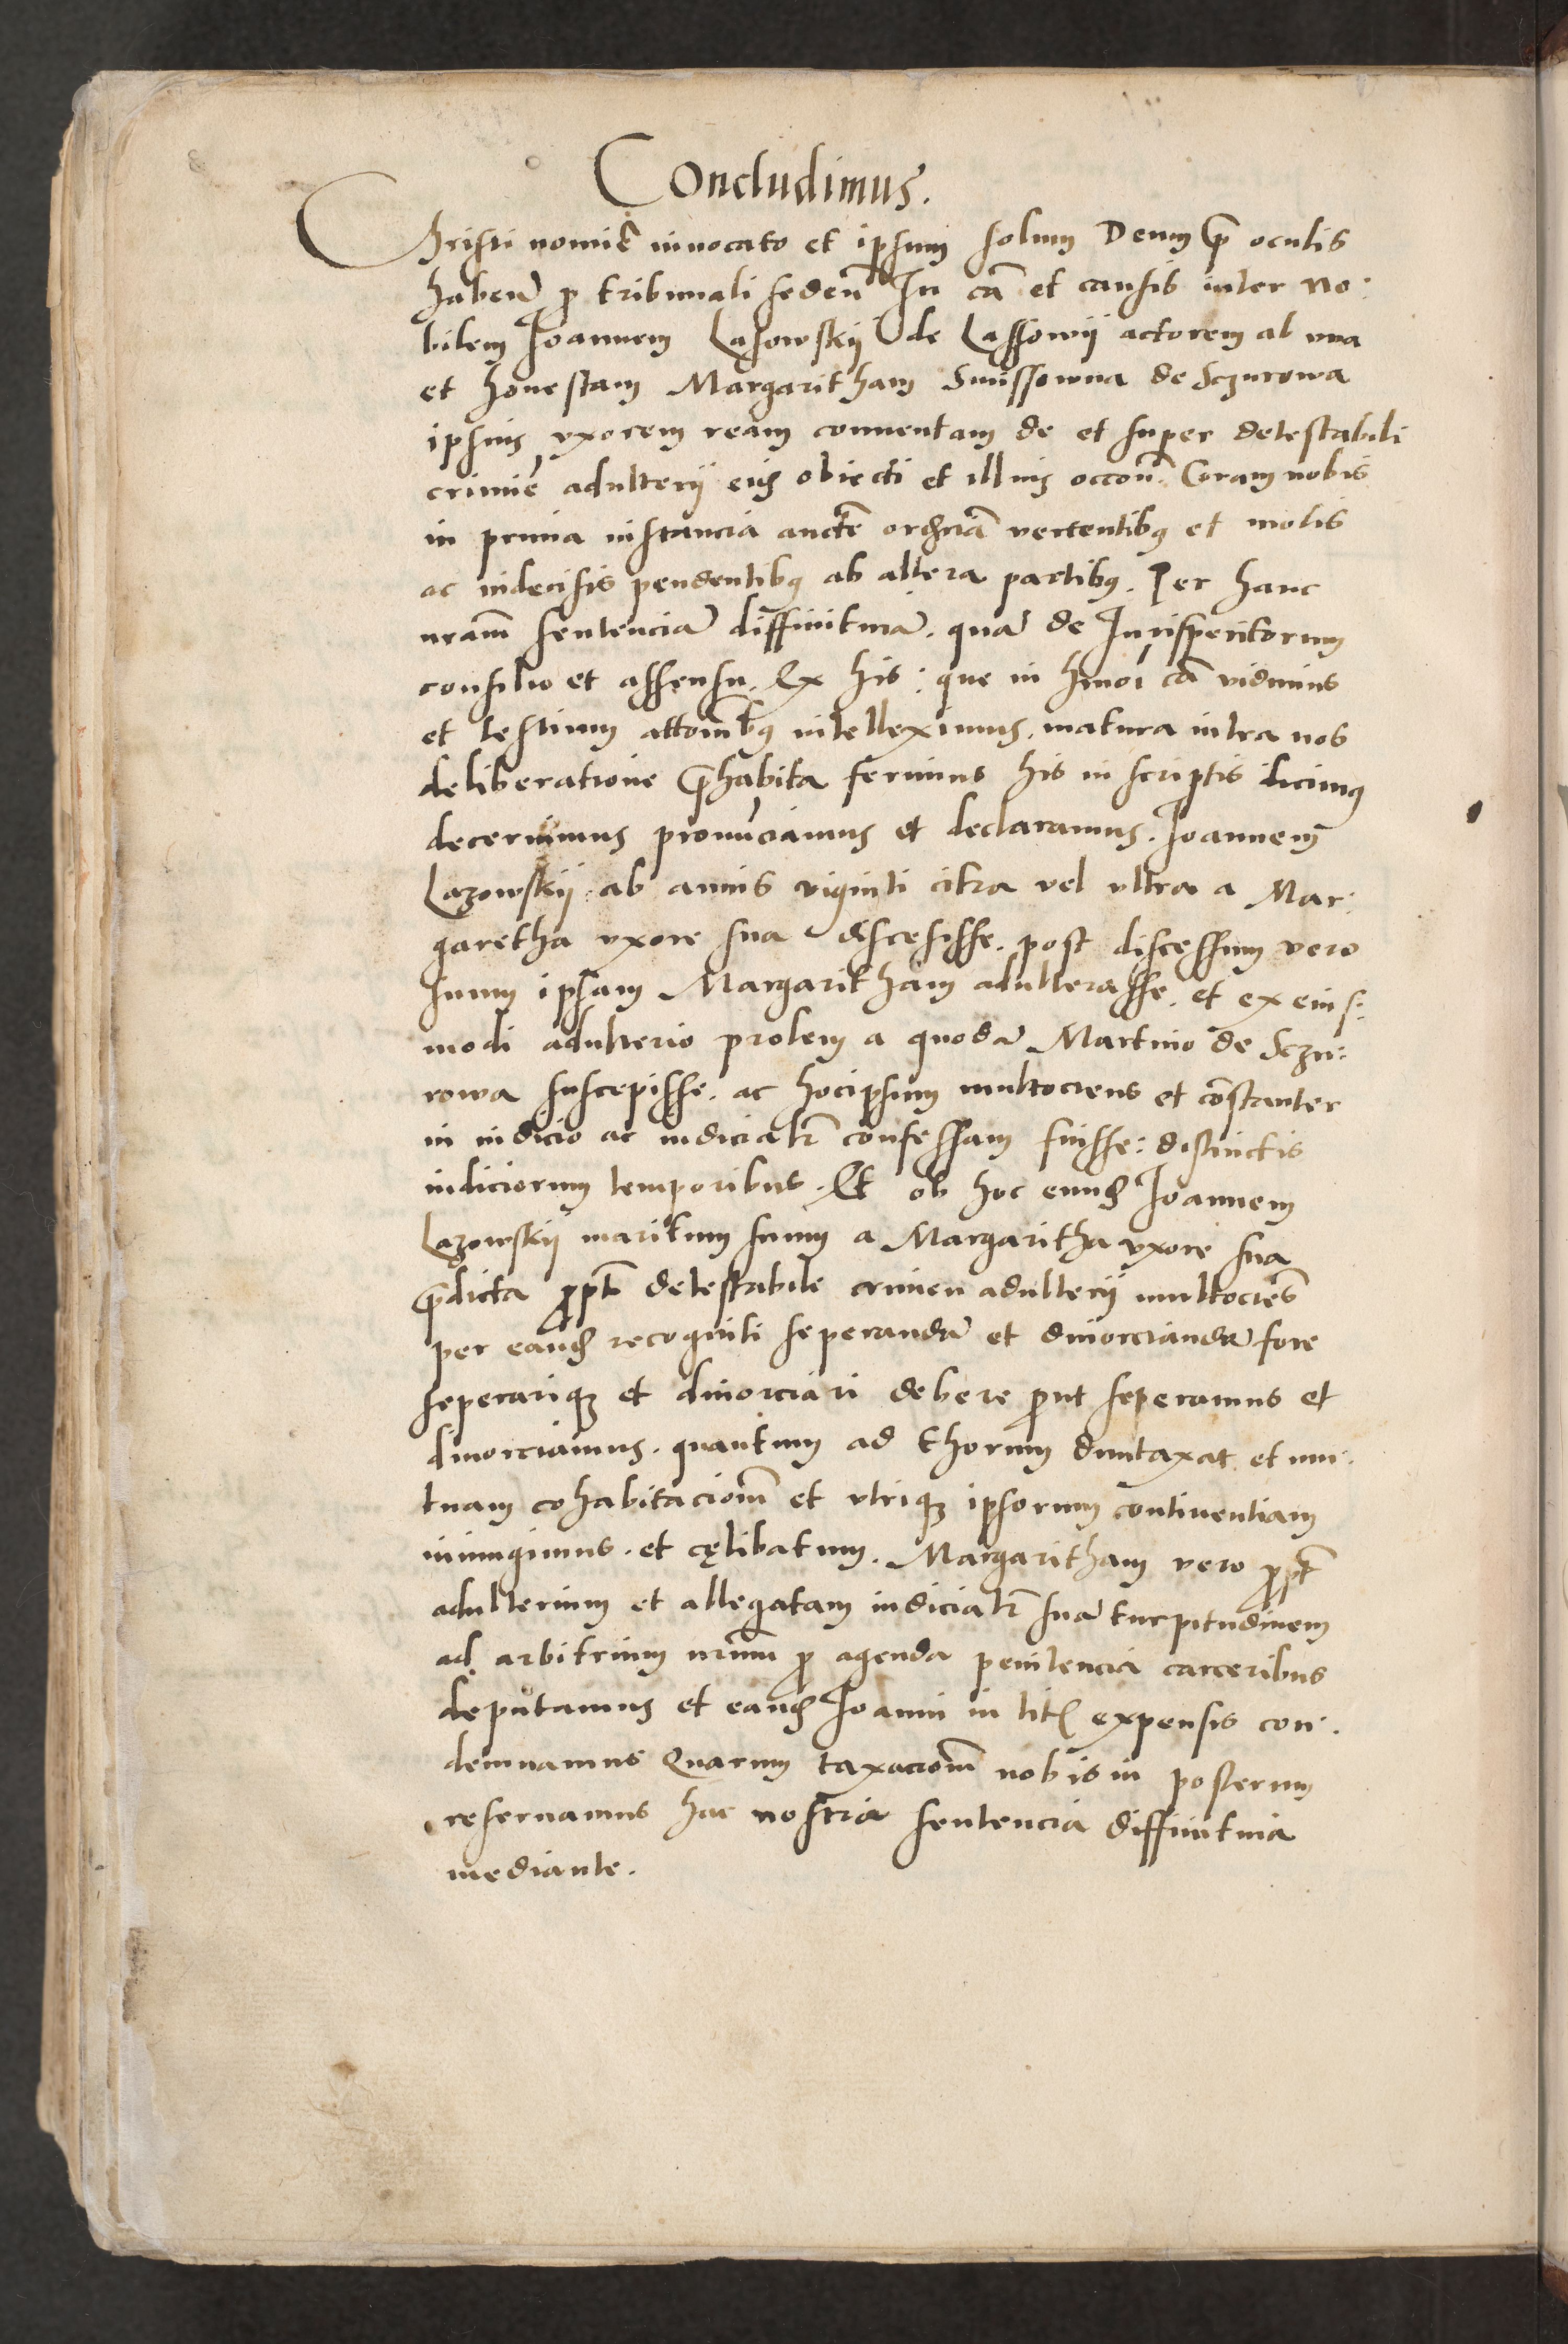 Concludimus.
Christi nomīe invocato et ipsum solum Deum p̄ oculis
habeñ p tribunali sedeñ In cā et causis inter No:
bilem Joannem Lasowskij de Lassowij actorem ab una
et honestam Margaritham Smissowna de Sczurowa
ipsius uxorem ream conventam de et super detestabili
crimīe adulterij eius obiecti et illius occoñ. Coram nobis
in prima instancia aucte ordriā vertentibus et motis
ac indecisis pendentibus ab altera partibus. Per hanc
nr̄am sentenciā diffinitivā. quā de Jurisperitorum
consilio et assensu. Ex his: que in hmōi cā vidimus
et testium attoībus intelleximus. matura intra nos
deliberatione p̄habita ferimus his in scriptis dicimus
decernimus pronūciamus et declaramus. Joannem
Lazowskij ab annis viginti citra vel ultra a Mar:
garetha uxore sua discesisse. post discessum vero
suum ipsam Margaritham adulterasse. et ex eius:
modi adulterio prolem a quodā Martino de Sczu:
rowa suscepisse. ac hocipsum multociens et cōstanter
in iudicio ac iudicialr̄ confessam fuisse: distinctis
iudiciorum temporibus. Et ob hoc eund Joannem
Lazowskij maritum suum a Margaritha uxore sua
p̄dicta propt detestabile crimen adulterij multociēs
per eand recogniti seperandā et divorciandā fore
seperarique et divorciari debere prout seperamus et
divorciamus. quantum ad thorum duntaxat et mu:
tuam cohabitacionē et utrique ipsorum continentiam
iniungimus. et cęlibatum. Margaritham vero propt
adulterium et allegatam iudicialr̄ suā turpitudinem
ad arbitrium nr̄um p agenda penitencia carceribus
deputamus et eand Joanni in lit expensis con:
demnamus Quarum taxacionē nobis in posterum
reservamus hac nostra sentencia diffinitiva
mediante.